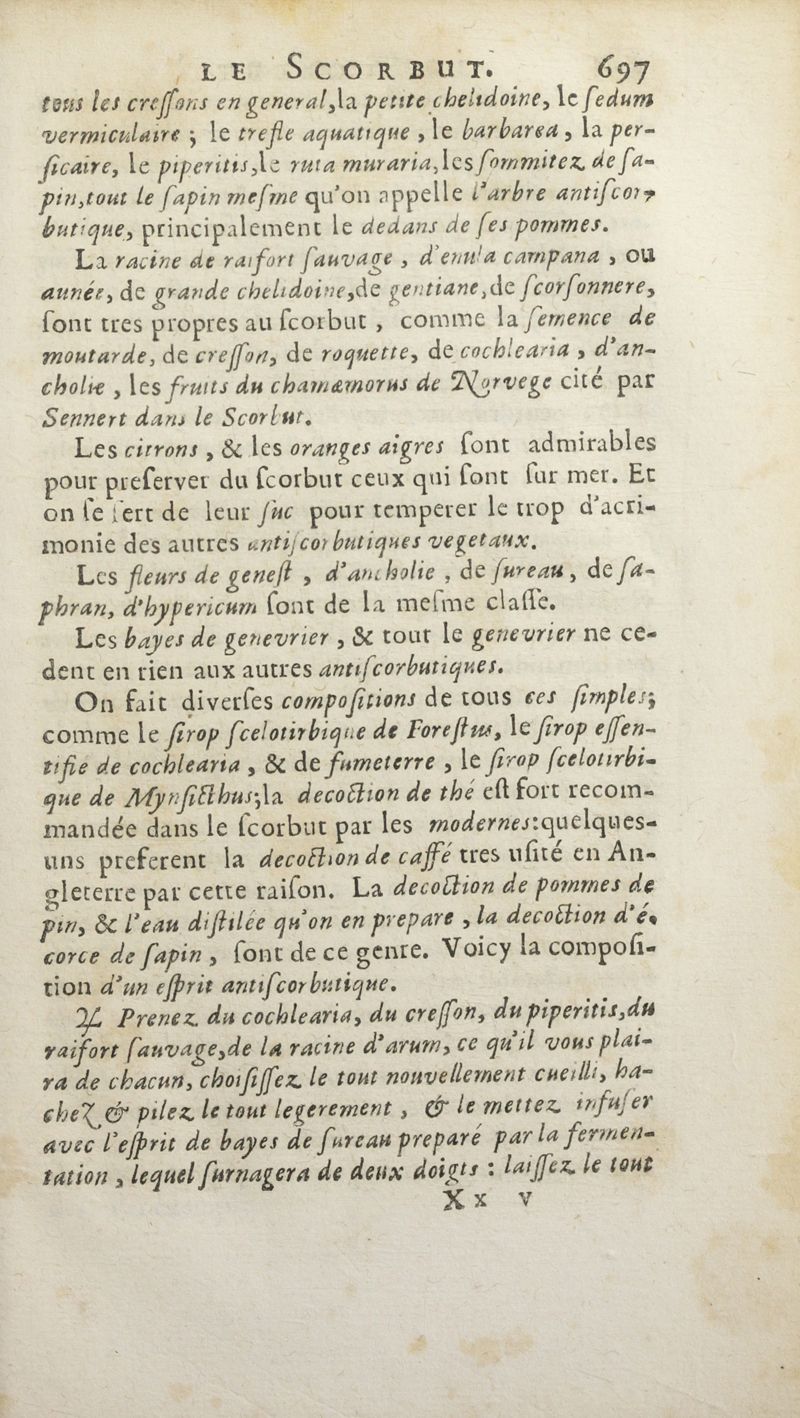 LE SCORBUT. 697
tous les creſſons en general, la petite chelidoine, le ſedum
vermiculaire ; le trefle aquatique , le barbarea , la per-
ſicaire, le piperitis, le ruta muraria, les ſommitez de ſa-
pin, tout le ſapin meſme qu'on appelle l'arbre antiſcor-
butique, principalement le dedans de ſes pommes.
La racine de raifort ſauvage , d'enula campana , ou
aunée, de grande chelidoine, de gentiane, de ſcorſonnere,
ſont tres propres au ſcorbut , comme la ſemence de
moutarde, de creſſon, de roquette, de cochlearia , d'an-
cholie , les fruits du chamæmorus de Norvege cité par
Sennert dans le Scorbut.
Les citrons , & les oranges aigres ſont admirables
pour preſerver du ſcorbut ceux qui ſont ſur mer. Et
on ſe ſert de leur ſuc pour temperer le trop d'acri-
monie des autres antiſcorbutiques vegetaux.
Les fleurs de geneſt , d'ancholie , de ſureau, de ſa-
phran, d'hypericum ſont de la meſme claſſe.
Les bayes de genevrier , & tout le genevrier ne ce-
dent en rien aux autres antiſcorbutiques.
On fait diverſes compoſitions de tous ces ſimples;
comme le ſirop ſcelotirbique de Foreſtus, le ſirop eſſen-
tifié de cochlearia , & de fumeterre , le ſirop ſcelotirbi-
que de Mynſicthus; la decoction de thé eſt fort recom-
mandée dans le ſcorbut par les modernes: quelques-
uns preferent la decoction de caffé tres uſité en An-
gleterre par cette raiſon. La decoction de pommes de
pin, & l'eau diſtilée qu'on en prepare , la decoction d'é-
corce de ſapin , ſont de ce genre. Voicy la compoſi-
tion d'un eſprit antiſcorbutique.
♃ Prenez du cochlearia, du creſſon, du piperitis, du
raifort ſauvage, de la racine d'arum, ce qu'il vous plai-
ra de chacun, choiſiſſez le tout nouvellement cueilli, ha-
chez & pilez le tout legerement , & le mettez infuſer
avec l'eſprit de bayes de ſureau preparé par la fermen-
tation , lequel ſurnagera de deux doigts : laiſſez le tout
Xx v